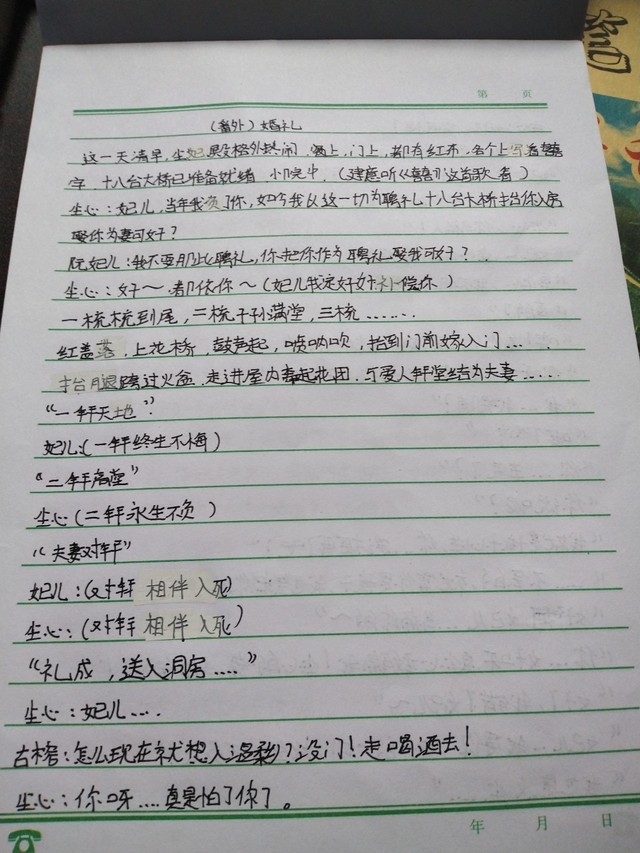 第 页
（番外）婚礼
这一天清早，尘妃殿格外热闹，窗上，门上，都有红布，各个上写着囍
字，十八台大桥已准备就绪，小院中，（建议听《囍》这首歌看）
尘心：妃儿，当年我负了你，如今我以这一切为聘礼十八台大桥抬你入房
娶你为妻可好？
阮妃儿：我不要那些聘礼，你把你作为聘礼娶我可好？
尘心：好～都依你～（妃儿我定好好补偿你）
一梳梳到尾，二梳子孙满堂，三梳……
红盖落，上花桥，鼓声起，唢呐吹，抬到门前嫁入门……
抬腿跨过火盆，走进屋内舞起花团，与爱人拜堂结为夫妻……
“一拜天地”
妃儿：（一拜终生不悔）
“二拜高堂”
尘心（二拜永生不负）
“夫妻对拜”
妃儿：（对拜 相伴入死）
尘心：（对拜 相伴入死）
“礼成，送入洞房....”
尘心：妃儿....
古榕：怎么现在就想入温柔乡？没门！走喝酒去！
尘心：你呀....真是怕了你了。
年 月 日